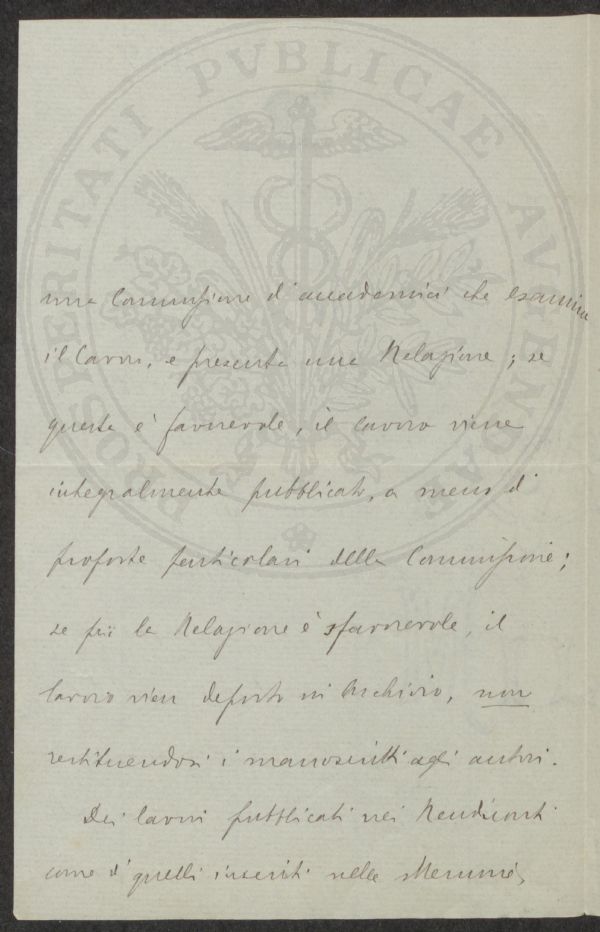 PROSPERITATI PUBLICAE AUGENDAE
una Commissione d'accademici che esamina
il lavoro, e presenta una Relazione; se
questa è favorevole, il lavoro viene
integralmente pubblicato, a meno di
proposte particolari della Commissione;
se poi la Relazione è sfavorevole, il
lavoro vien deposto in Archivio, non
restituendosi i manoscritti agli autori.
Dei lavori pubblicati nei Rendiconti
come di quelli inseriti nelle Memorie,